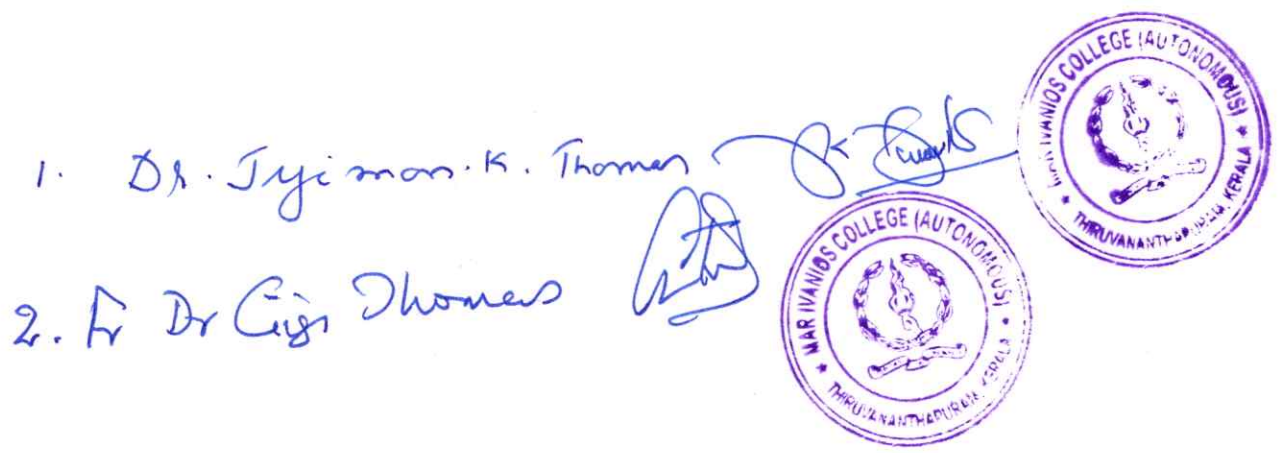 1. Dr. Jijimon. K. Thomas
MAR IVANIOS COLLEGE (AUTONOMOUS)
★ THIRUVANANTHAPURAM, KERALA ★
2. Fr Dr Gigi Thomas
MAR IVANIOS COLLEGE (AUTONOMOUS)
★ THIRUVANANTHAPURAM, KERALA ★